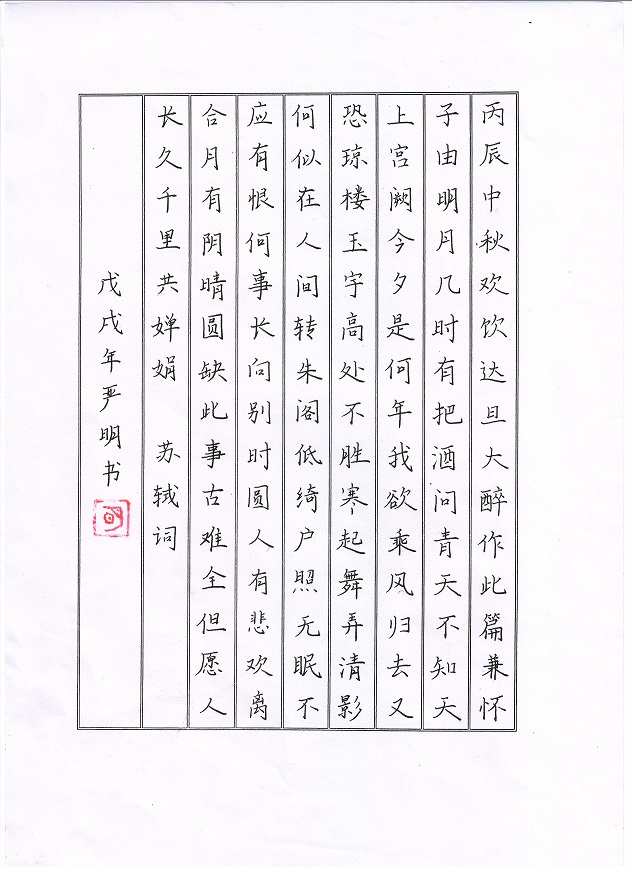 丙辰中秋欢饮达旦大醉作此篇兼怀
子由明月几时有把酒问青天不知天
上宫阙今夕是何年我欲乘风归去又
恐琼楼玉宇高处不胜寒起舞弄清影
何似在人间转朱阁低绮户照无眠不
应有恨何事长向别时圆人有悲欢离
合月有阴晴圆缺此事古难全但愿人
长久千里共婵娟 苏轼词
戊戌年严明书